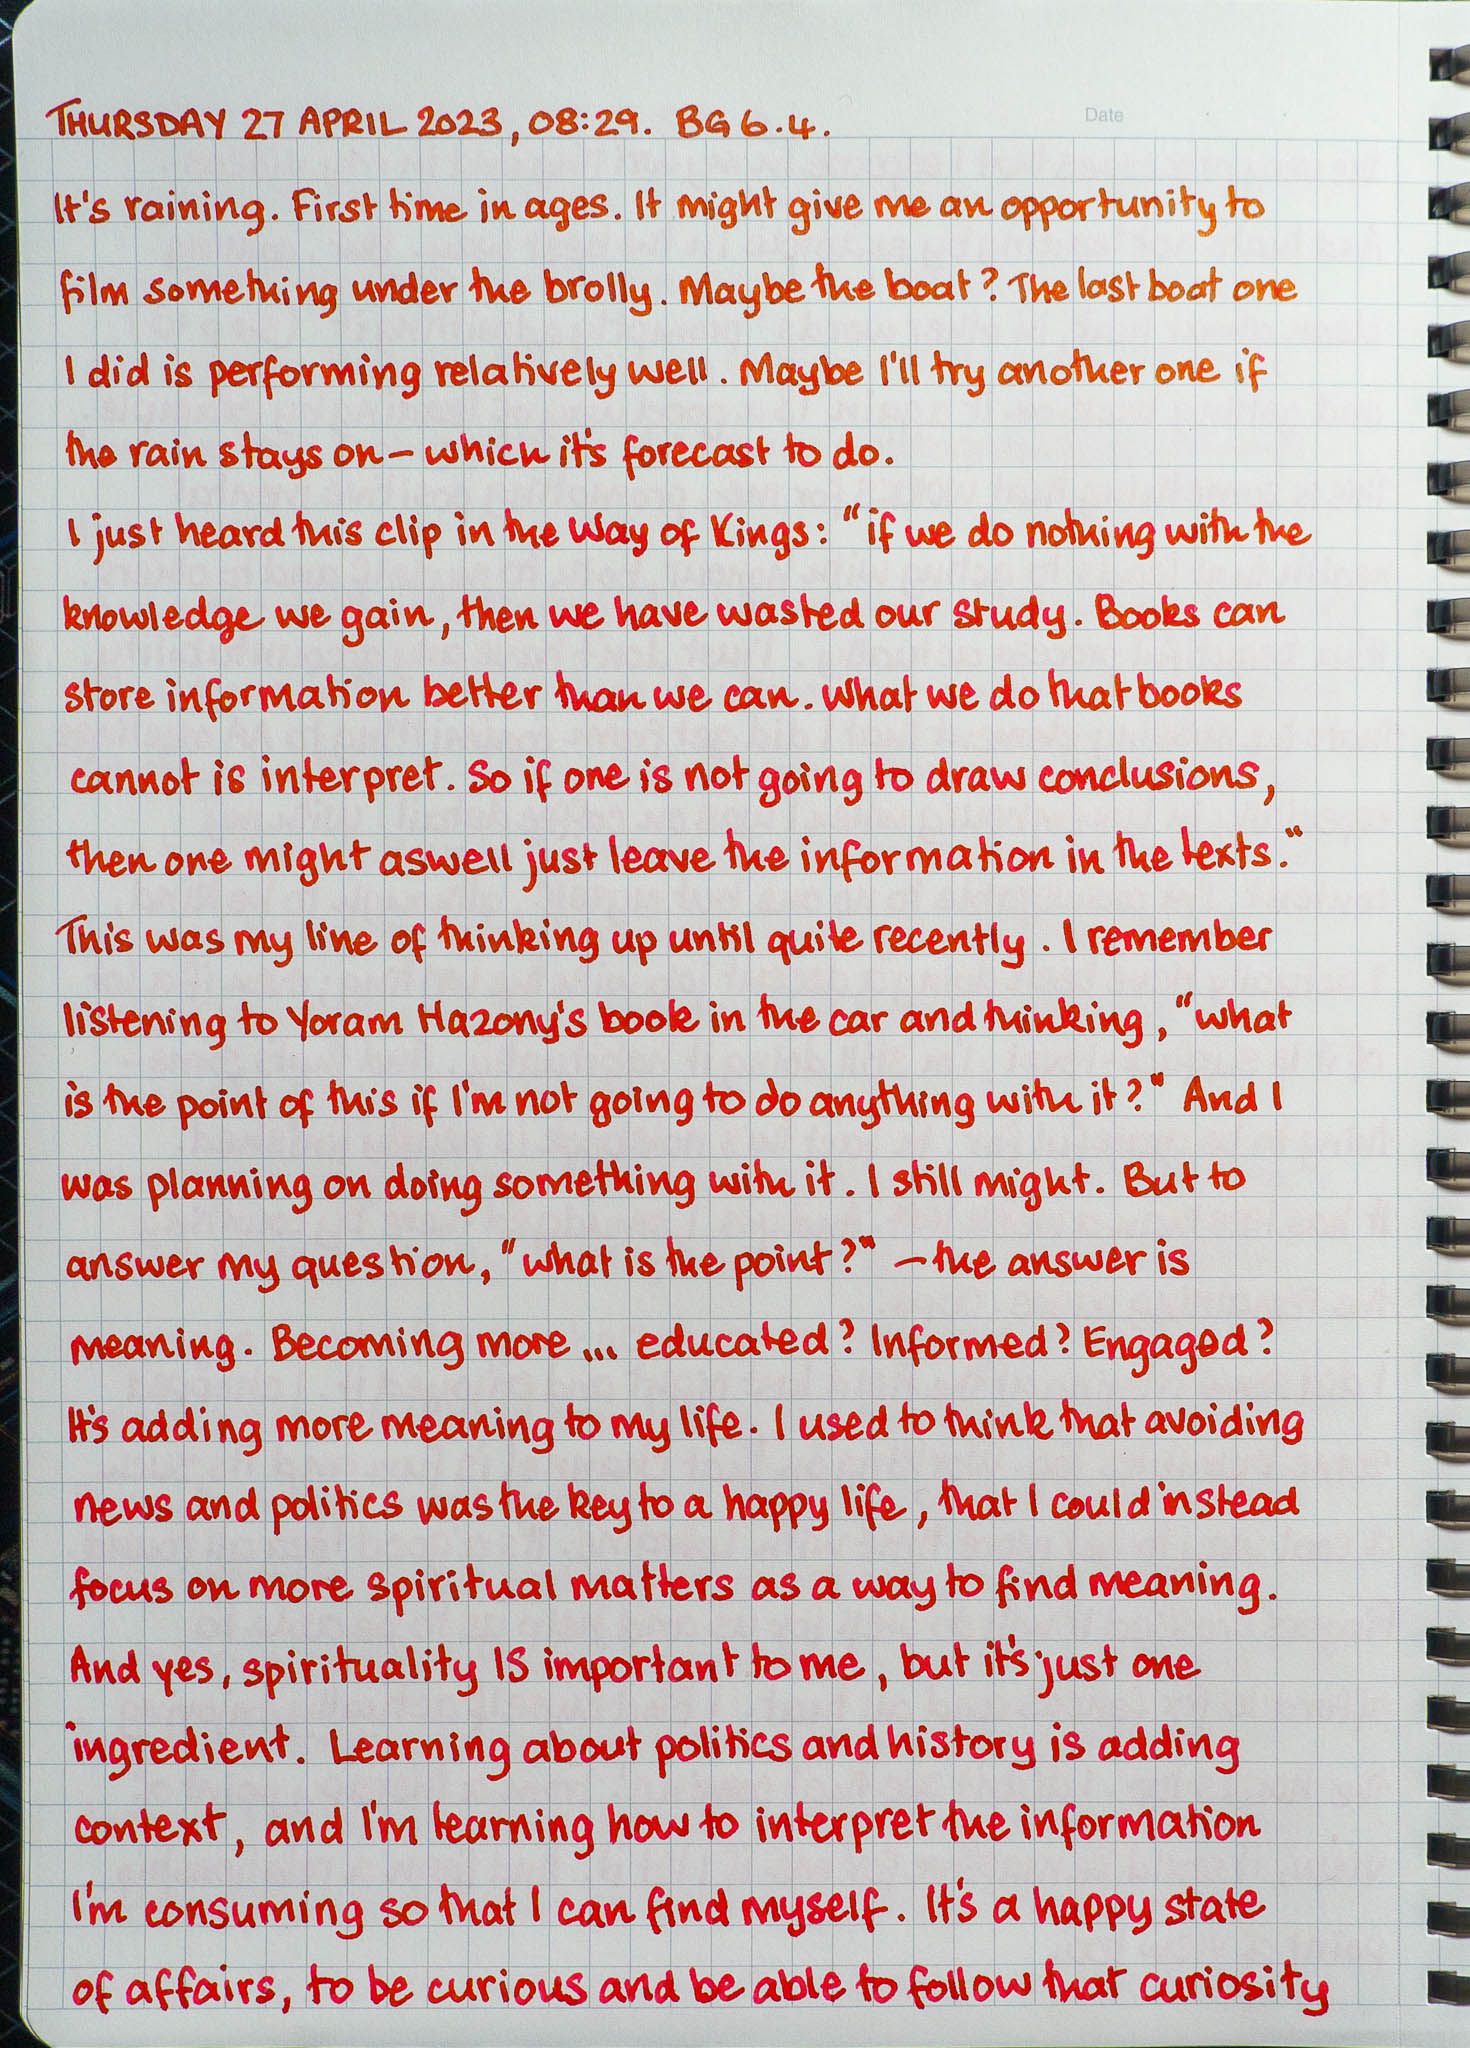 THURSDAY 27 APRIL 2023, 08:29. BG 6.4.
Date
It's raining. First time in ages. It might give me an opportunity to
film something under the brolly. Maybe the boat? The last boat one
I did is performing relatively well. Maybe I'll try another one if
the rain stays on – which it's forecast to do.
I just heard this clip in the Way of Kings: "if we do nothing with the
knowledge we gain, then we have wasted our study. Books can
store information better than we can. What we do that books
cannot is interpret. So if one is not going to draw conclusions,
then one might aswell just leave the information in the texts."
This was my line of thinking up until quite recently. I remember
listening to Yoram Hazony's book in the car and thinking, "what
is the point of this if I'm not going to do anything with it?" And I
was planning on doing something with it. I still might. But to
answer my question, "what is the point?" – the answer is
meaning. Becoming more... educated? Informed? Engaged?
It's adding more meaning to my life. I used to think that avoiding
news and politics was the key to a happy life, that I could instead
focus on more spiritual matters as a way to find meaning.
And yes, spirituality IS important to me, but it's just one
ingredient. Learning about politics and history is adding
context, and I'm learning how to interpret the information
I'm consuming so that I can find myself. It's a happy state
of affairs, to be curious and be able to follow that curiosity